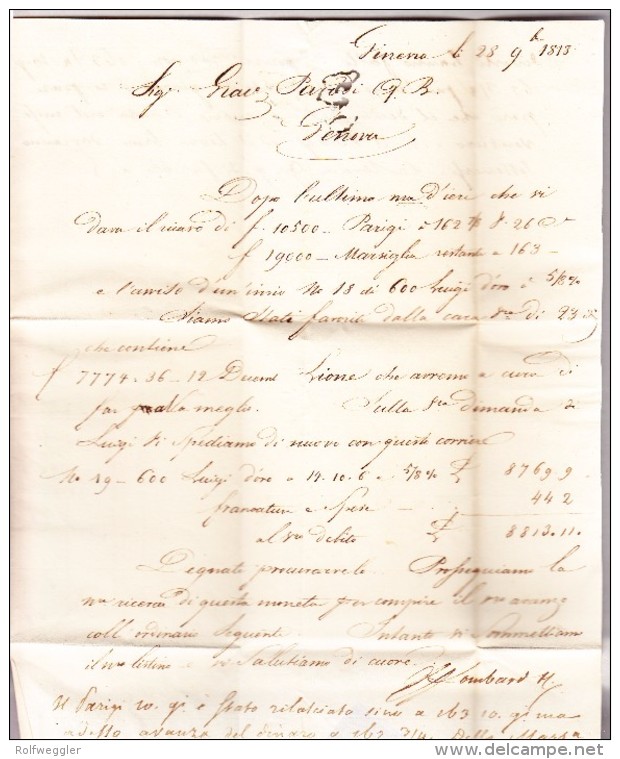 Ginevra li 28 9b 1813
Sigr Giac Parodi q. B.
Genova
Dopo l'ultima ma d'ieri che vi
dava il ricavo di f. 10500 - Parigi a 162
f 19000 - Marsiglia restante a 163 -
e l'avviso d'un'invio No 18 di 600 Luigi d'oro a 5/8 %
Siamo stati favoriti dalla cara vra di 23
che contiene
f 7774.36 - 12 Lione che avremo a cura di
far meglio. Sulla vra dimanda di
Luigi vi spediamo di nuovo con questo corriere
No 19 - 600 Luigi d'oro a 14.10.6 e 5/8 % 8769 9
francatura e spese 44 2
al vro debito 8813.11.
Degnate procurarcelo. Proseguiamo la
nra ricerca di questa moneta per compire il
coll'ordinario seguente. Intanto vi
il nro listino e vi salutiamo di cuore.
Lombard
Il Parigi 10. gi. è stato rilasciato sino a 163 10. gi. ma
adesso avanza del dinaro a 162 3/4.
Rolfweggler
delcampe.net